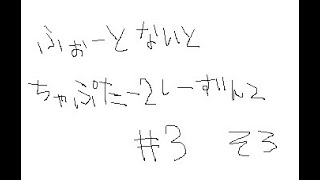 ふぉーとないと
ちゃぷたー2しーずん2
#3 そろ